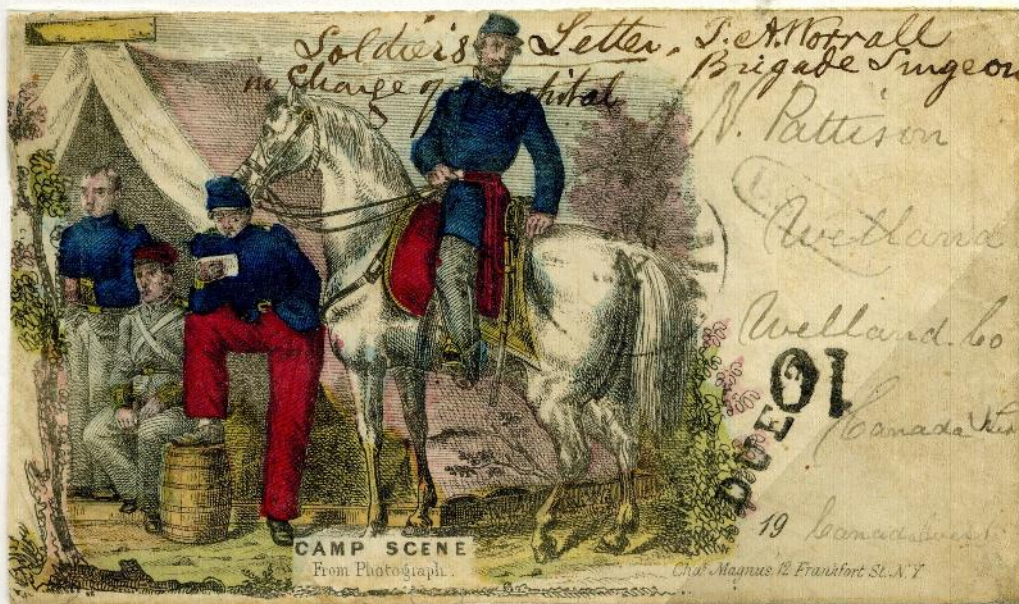 Soldier's Letter. J. A. Worrall
in Charge of Hospital Brigade Surgeon
N. Pattison
Welland
Welland. Co
Canada West
DUE 10
19 Canada West
CAMP SCENE
From Photograph.
Chas Magnus, 12 Frankfort St. N.Y